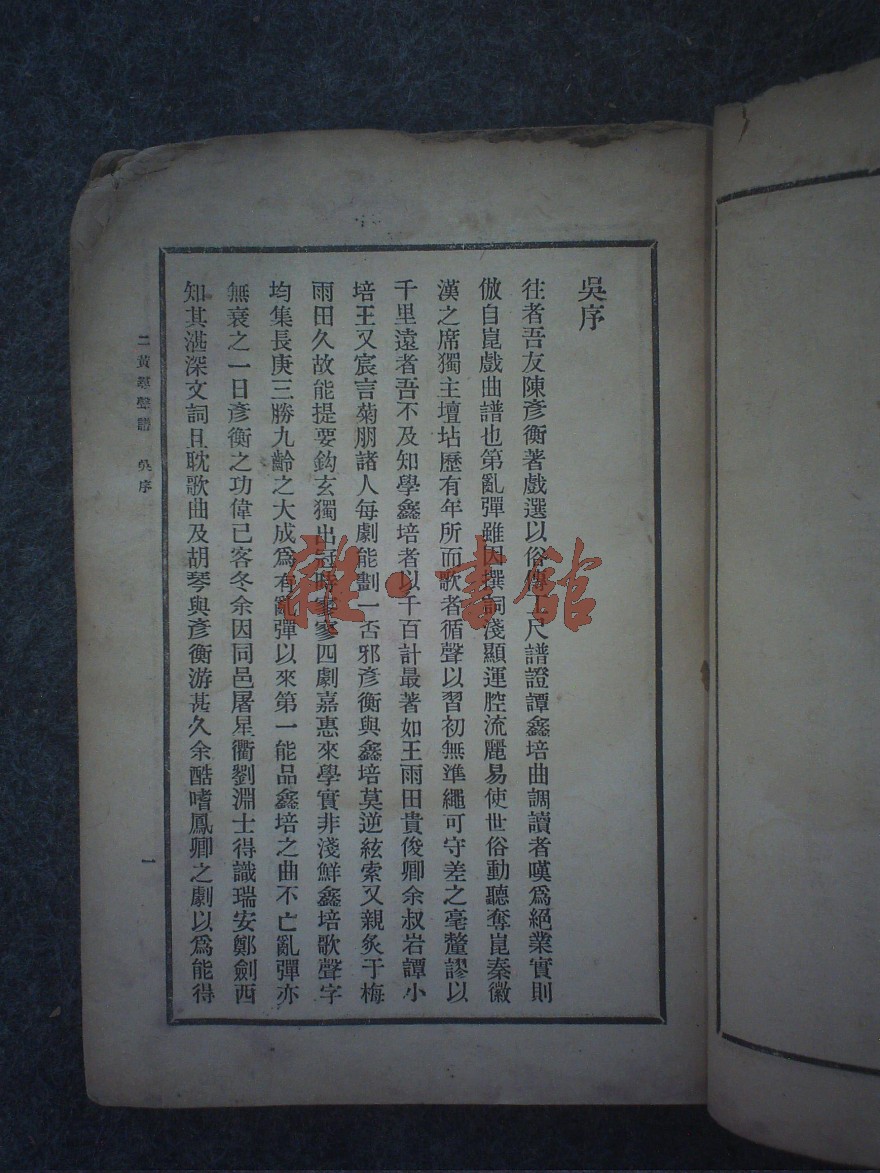 吳序
往者吾友陳彥衡著戲選以俗傳工尺譜證譚鑫培曲調讀者嘆爲絕業實則
倣自崑戲曲譜也第亂彈雖因撰詞淺顯運腔流麗易使世俗動聽奪崑秦徽
漢之席獨主壇坫歷有年所而歌者循聲以習初無準繩可守差之毫釐謬以
千里遠者吾不及知學鑫培者以千百計最著如王雨田貴俊卿余叔岩譚小
培王又宸言菊朋諸人每劇能劃一否邪彥衡與鑫培莫逆絃索又親炙于梅
雨田久故能提要鈎玄獨出冠時寥寥四劇嘉惠來學實非淺鮮鑫培歌聲字
均集長庚三勝九齡之大成爲有亂彈以來第一能品鑫培之曲不亡亂彈亦
無衰之一日彥衡之功偉已客冬余因同邑屠星衢劉淵士得識瑞安鄭劍西
知其湛深文詞且耽歌曲及胡琴與彥衡游甚久余酷嗜鳳卿之劇以爲能得
二黃尋聲譜 吳序
一
雜·書館